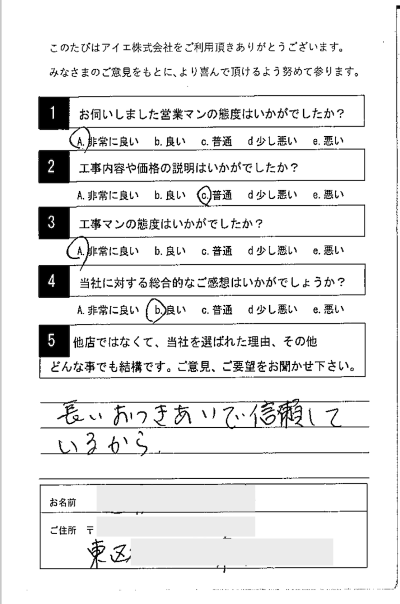 このたびはアイエ株式会社をご利用頂きありがとうございます。
みなさまのご意見をもとに、より喜んで頂けるよう努めて参ります。
1 お伺いしました営業マンの態度はいかがでしたか？
A.非常に良い b.良い c.普通 d少し悪い e.悪い
2 工事内容や価格の説明はいかがでしたか？
A.非常に良い b.良い c.普通 d少し悪い e.悪い
3 工事マンの態度はいかがでしたか？
A.非常に良い b.良い c.普通 d少し悪い e.悪い
4 当社に対する総合的なご感想はいかがでしょうか？
A.非常に良い b.良い c.普通 d少し悪い e.悪い
5 他店ではなくて、当社を選ばれた理由、その他
どんな事でも結構です。ご意見、ご要望をお聞かせ下さい。
長いおつきあいで信頼して
いるから.
お名前
ご住所 〒
東区